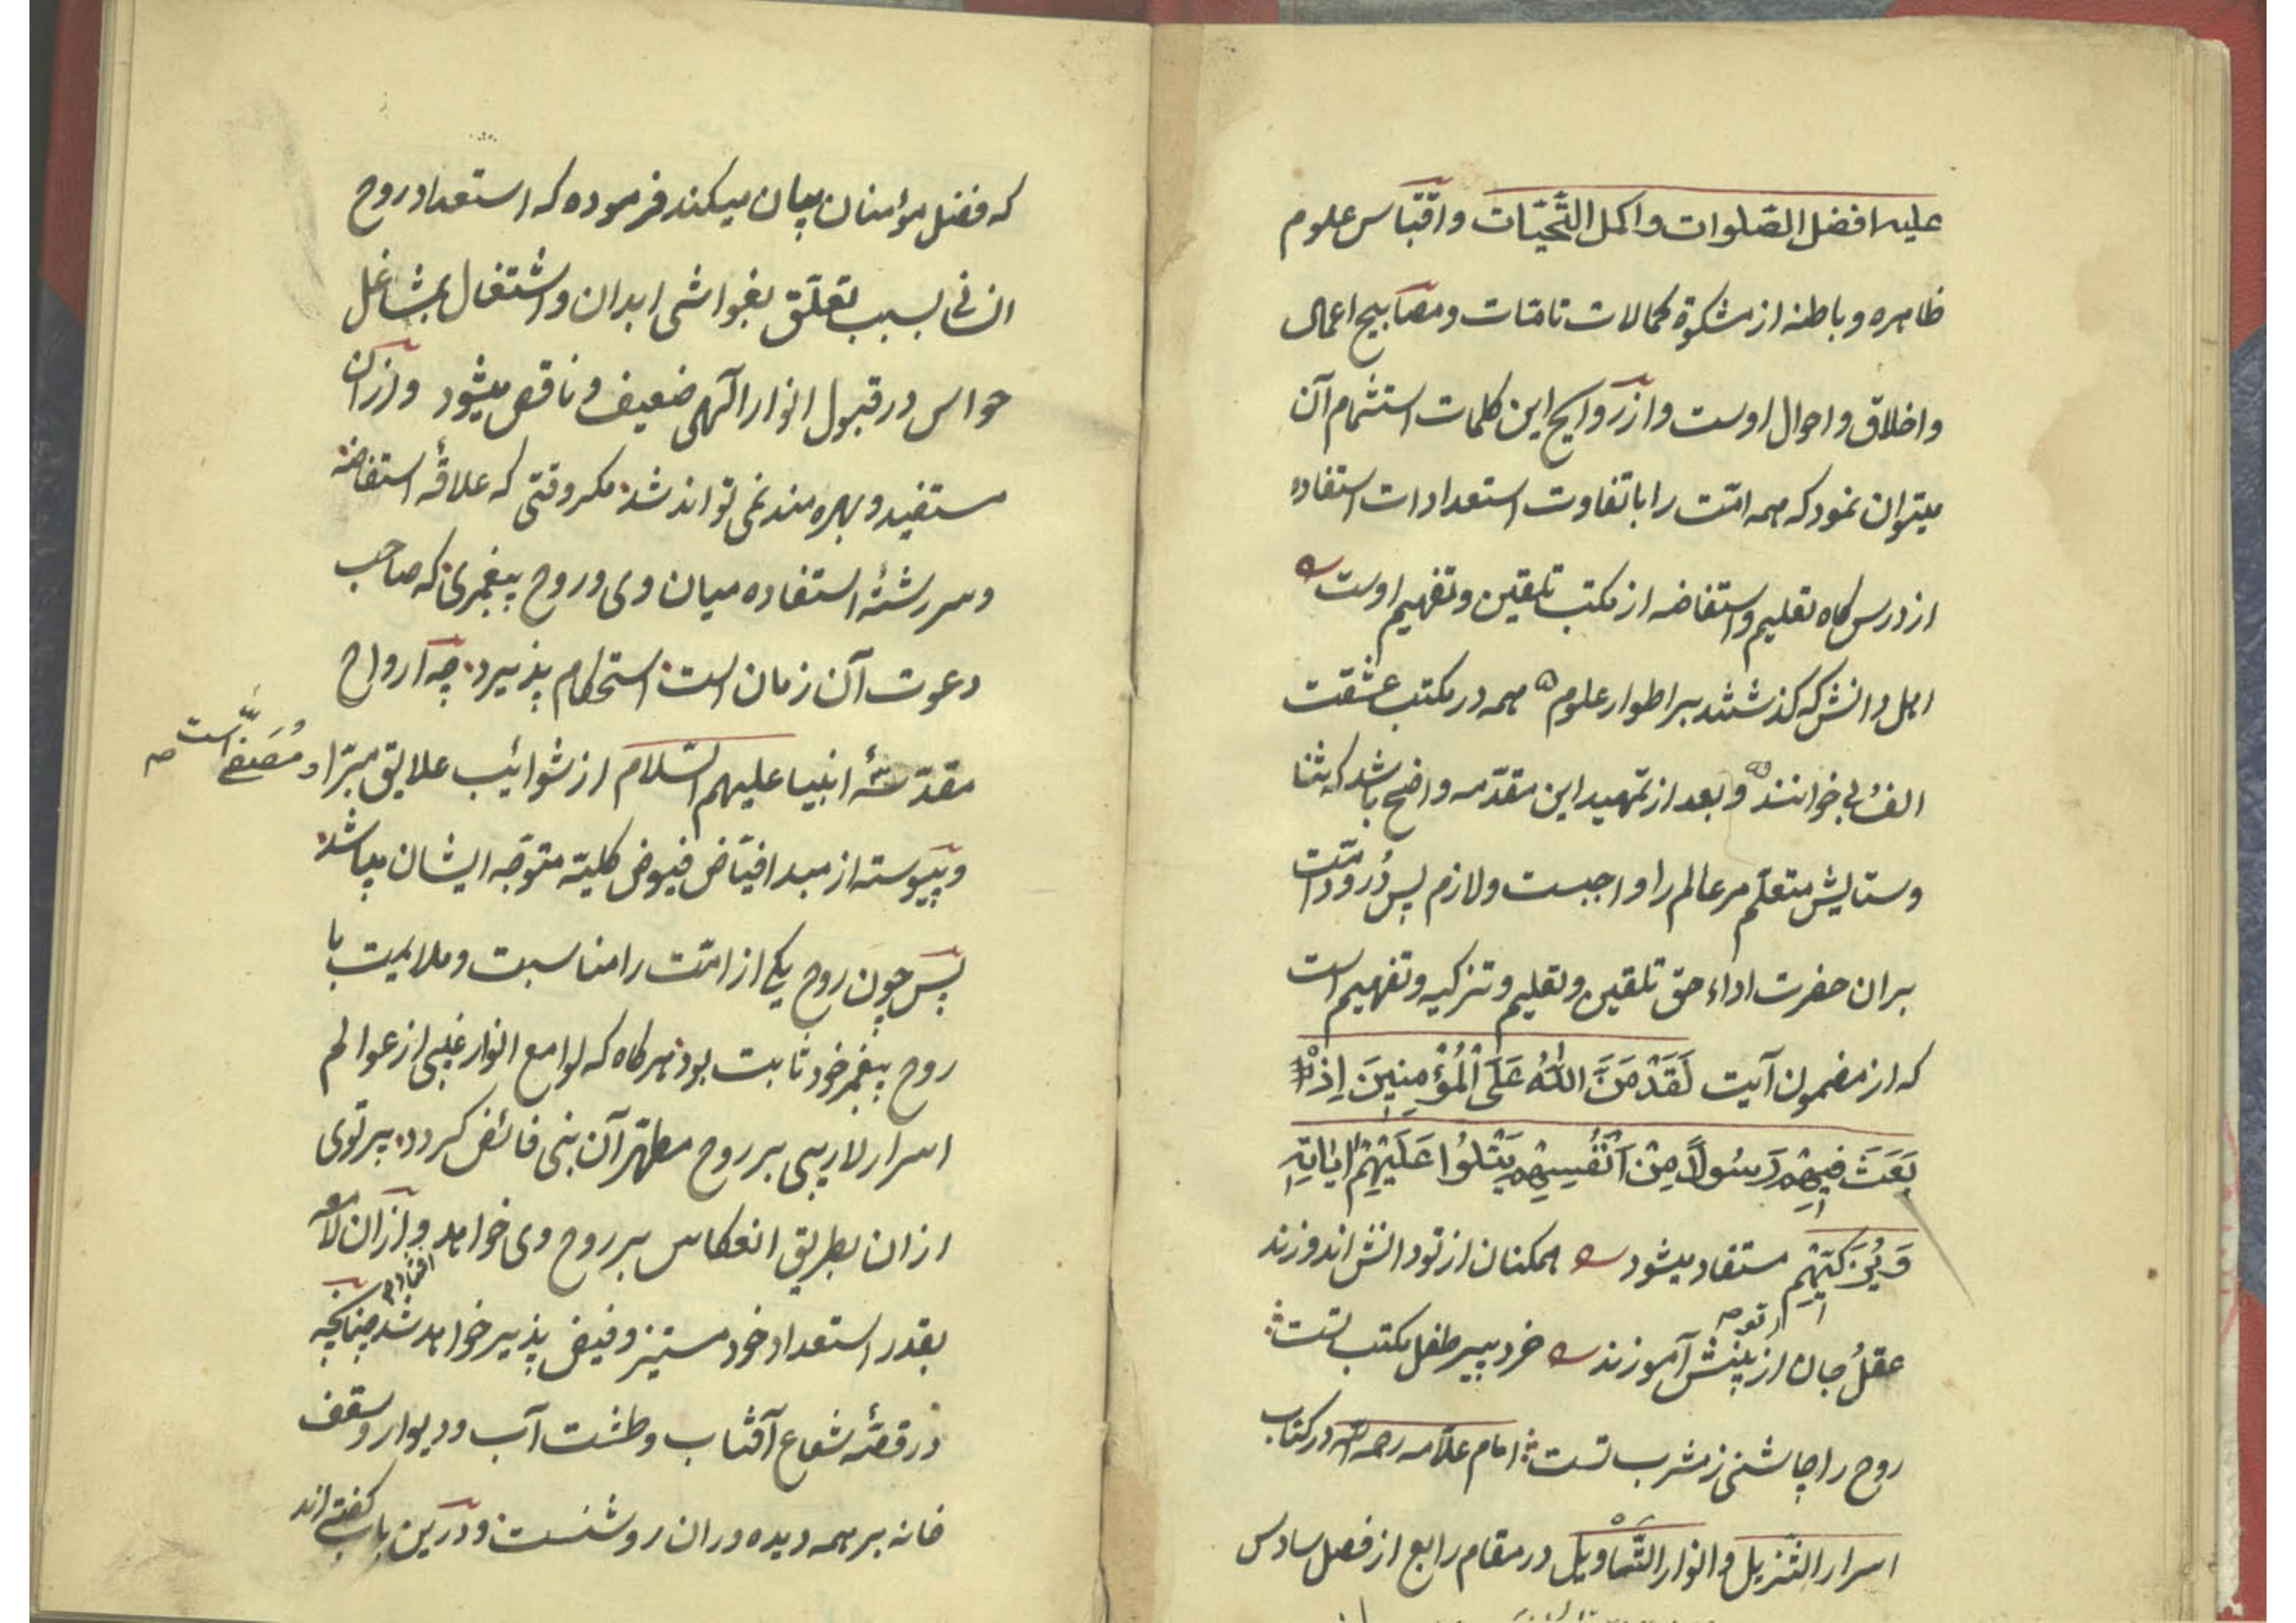 علیه افضل الصّلوات واکمل التّحیّات واقتباس علوم
ظاهره وباطنه از مشکوة کمالات تامّات ومصابیح اعمال
واخلاق واحوال اوست وازروایح این کلمات استشمام آن
میتوان نمود که همه امّت را با تفاوت استعدادات استفاده
از درس کاه تعلیم واستفاضه از مکتب تلقین وتفهیم اوست
اهل دانش که کذشتند بر اطوار علوم ه همه در مکتب عشقت
الف بی خوانند ه وبعد از تمهید این مقدّمه واضح باشد که ثنا
وستایش متعلّم مر عالم را واجبست ولازم پس دُرود امّت
بران حضرت اداء حق تلقین وتعلیم وتزکیه وتفهیم است
که از مضمون آیت لَقَدْ مَنَّ اللّٰهُ عَلَی الْمُؤْمِنِینَ اِذْ
بَعَثَ فِیهِمْ رَسُولاً مِنْ اَنْفُسِهِمْ یَتْلُوا عَلَیْهِمْ ایَاتِهِ
وَیُزَکِّیهِمْ مستفاد میشود ممکنان از تو دانش اندوزند
عقل جان از بینش آموزند خرد پیر طفل مکتب تست
روح را چاشنی ز مشرب تست امام علّامه رحمه اللّه در کتاب
اسرار التّنزیل وانوار التّاویل در مقام رابع از فصل سادس
که فضل مؤمنان بیان میکند فرموده که استعداد روح
انسانی بسبب تعلّق بغواشی ابدان واشتغال بمشاغل
حواس در قبول انوار آلهی ضعیف وناقص میشود وازان
مستفید وبهره مند نمی تواند شد مکر وقتی که علاقهٔ استفاضه
وسر رشتهٔ استفاده میان وی وروح پیغمبری که صاحب
دعوت آن زمان است استحکام پذیرد چه ارواح
مقدّسهٔ انبیا علیهم السّلام از شوائب علایق مبرّا و مُصَفّی است صح
وپیوسته از مبدا فیّاض فیوض کلیّه متوجّه ایشان میباشد
پس چون روح یکی از امّت را مناسبت وملایمت با
روح پیغمبر خود ثابت بود هرکاه که لوامع انوار غیبی از عوالم
اسرار لاریبی بر روح مطهّر آن نبی فائض کردد پرتوی
ازان بطریق انعکاس بر روح وی خواهد وازان لامعه
افتاد
بقدر استعداد خود مستنیر وفیض پذیر خواهد شد چنانچه
در قصّهٔ شعاع آفتاب وطشت آب ودیوار وسقف
خانه بر همه دیده وران روشنست ودرین باب کفته اند